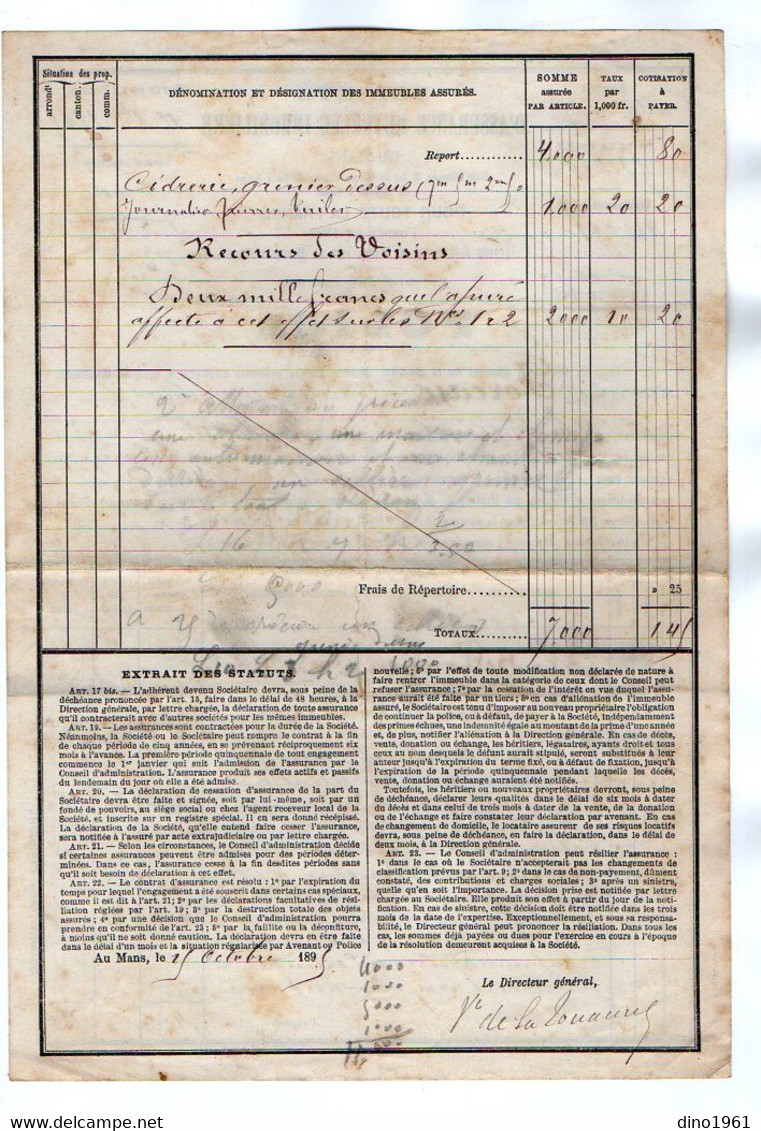 Situation des prop.
arrondt
canton.
comm.
DÉNOMINATION ET DÉSIGNATION DES IMMEUBLES ASSURÉS.
SOMME
assurée
PAR ARTICLE.
TAUX
par
1,000 fr.
COTISATION
à
PAYER.
Report............ 4.000 80
Cidrerie, grenier dessus
1.000 20 20
Recours des Voisins
Deux mille francs
affecte à cet effet sur les Nos 1 & 2 2000 10 20
2
3.50
16
5000
Frais de Répertoire.......... » 25
TOTAUX....... 7000 1.45
1000
EXTRAIT DES STATUTS.
ART. 17 bis. — L'adhérent devenu Sociétaire devra, sous peine de la
déchéance prononcée par l'art. 15, faire dans le délai de 48 heures, à la
Direction générale, par lettre chargée, la déclaration de toute assurance
qu'il contracterait avec d'autres sociétés pour les mêmes immeubles.
ART. 19. — Les assurances sont contractées pour la durée de la Société.
Néanmoins, la Société ou le Sociétaire peut rompre le contrat à la fin
de chaque période de cinq années, en se prévenant réciproquement six
mois à l'avance. La première période quinquennale de tout engagement
commence le 1er janvier qui suit l'admission de l'assurance par le
Conseil d'administration. L'assurance produit ses effets actifs et passifs
du lendemain du jour où elle a été admise.
ART. 20. — La déclaration de cessation d'assurance de la part du
Sociétaire devra être faite et signée, soit par lui-même, soit par un
fondé de pouvoirs, au siège social ou chez l'agent receveur local de la
Société, et inscrite sur un registre spécial. Il en sera donné récépissé.
La déclaration de la Société, qu'elle entend faire cesser l'assurance,
sera notifiée à l'assuré par acte extrajudiciaire ou par lettre chargée.
ART. 21. — Selon les circonstances, le Conseil d'administration décide
si certaines assurances peuvent être admises pour des périodes déter-
minées. Dans ce cas, l'assurance cesse à la fin desdites périodes sans
qu'il soit besoin de déclaration à cet effet.
ART. 22. — Le contrat d'assurance est résolu : 1° par l'expiration du
temps pour lequel l'engagement a été souscrit dans certains cas spéciaux,
comme il est dit à l'art. 21; 2° par les déclarations facultatives de rési-
liation réglées par l'art. 19; 3° par la destruction totale des objets
assurés; 4° par une décision que le Conseil d'administration pourra
prendre en conformité de l'art. 23; 5° par la faillite ou la déconfiture,
à moins qu'il ne soit donné caution. La déclaration devra en être faite
dans le délai d'un mois et la situation régularisée par Avenant ou Police
nouvelle; 6° par l'effet de toute modification non déclarée de nature à
faire rentrer l'immeuble dans la catégorie de ceux dont le Conseil peut
refuser l'assurance; 7° par la cessation de l'intérêt en vue duquel l'assu-
rance aurait été faite par un tiers; 8° en cas d'aliénation de l'immeuble
assuré, le Sociétaire est tenu d'imposer au nouveau propriétaire l'obligation
de continuer la police, ou à défaut, de payer à la Société, indépendamment
des primes échues, une indemnité égale au montant de la prime d'une année
et, de plus, notifier l'aliénation à la Direction générale. En cas de décès,
vente, donation ou échange, les héritiers, légataires, ayants droit et tous
ceux au nom desquels le défunt aurait stipulé, seront substitués à leur
auteur jusqu'à l'expiration du terme fixé, ou à défaut de fixation, jusqu'à
l'expiration de la période quinquennale pendant laquelle les décès,
vente, donation ou échange auraient été notifiés.
Toutefois, les héritiers ou nouveaux propriétaires devront, sous peine
de déchéance, déclarer leurs qualités dans le délai de six mois à dater
du décès et dans celui de trois mois à dater de la vente, de la donation
ou de l'échange et faire constater leur déclaration par avenant. En cas
de changement de domicile, le locataire assureur de ses risques locatifs
devra, sous peine de déchéance, en faire la déclaration, dans le délai de
deux mois, à la Direction générale.
ART. 23. — Le Conseil d'administration peut résilier l'assurance :
1° dans le cas où le Sociétaire n'accepterait pas les changements de
classification prévus par l'art. 9; 2° dans le cas de non-payement, dûment
constaté, des contributions et charges sociales; 3° après un sinistre,
quelle qu'en soit l'importance. La décision prise est notifiée par lettre
chargée au Sociétaire. Elle produit son effet à partir du jour de la noti-
fication. En cas de sinistre, cette décision doit être notifiée dans les trois
mois de la date de l'expertise. Exceptionnellement, et sous sa responsa-
bilité, le Directeur général peut prononcer la résiliation. Dans tous les
cas, les sommes déjà payées ou dues pour l'exercice en cours à l'époque
de la résolution demeurent acquises à la Société.
Au Mans, le 25 Octobre 1895
4000
1000
5000
1000
Le Directeur général,
Vte de La Touanne
dino1961